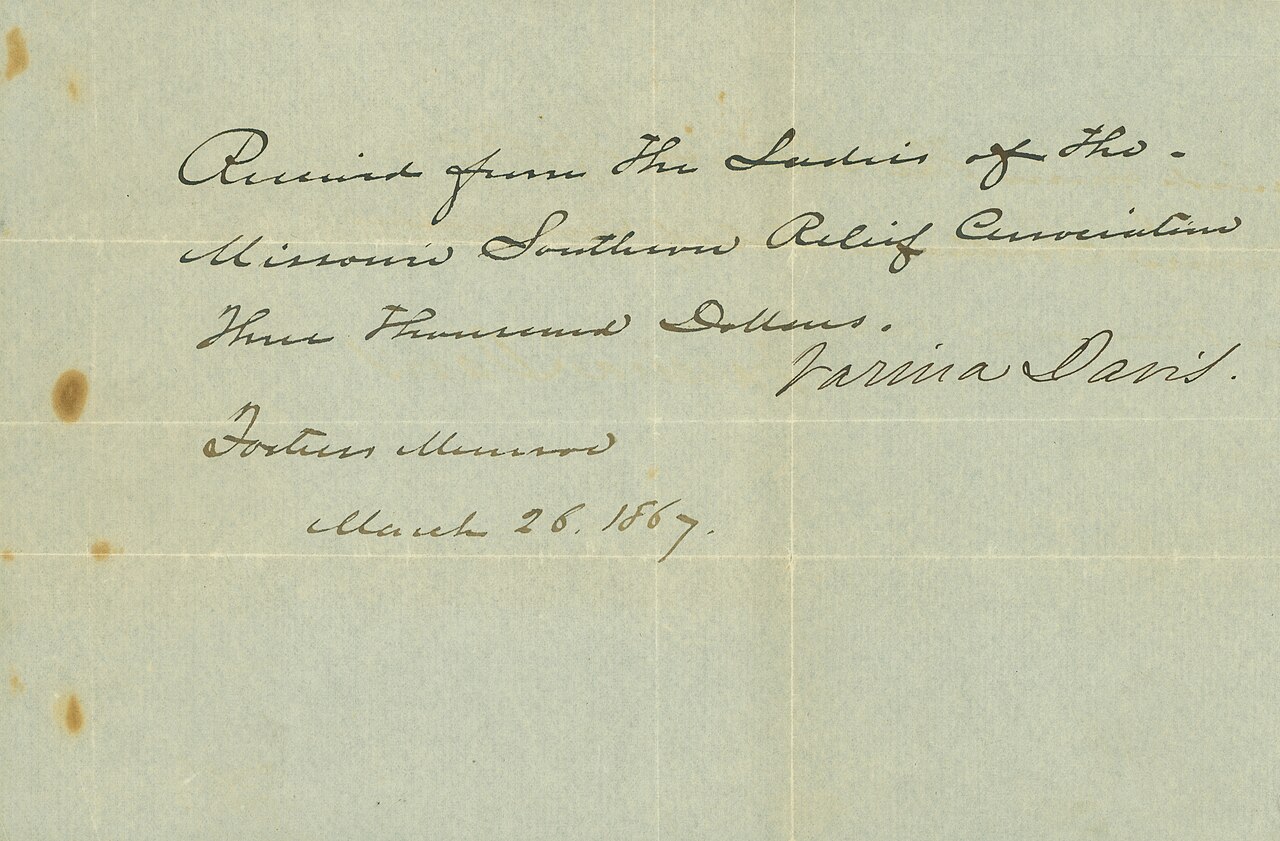 Received from The Ladies of the.
Missouri Southern Relief Association
Three Thousand Dollars.
Varina Davis.
Fortress Monroe
March 26. 1867.